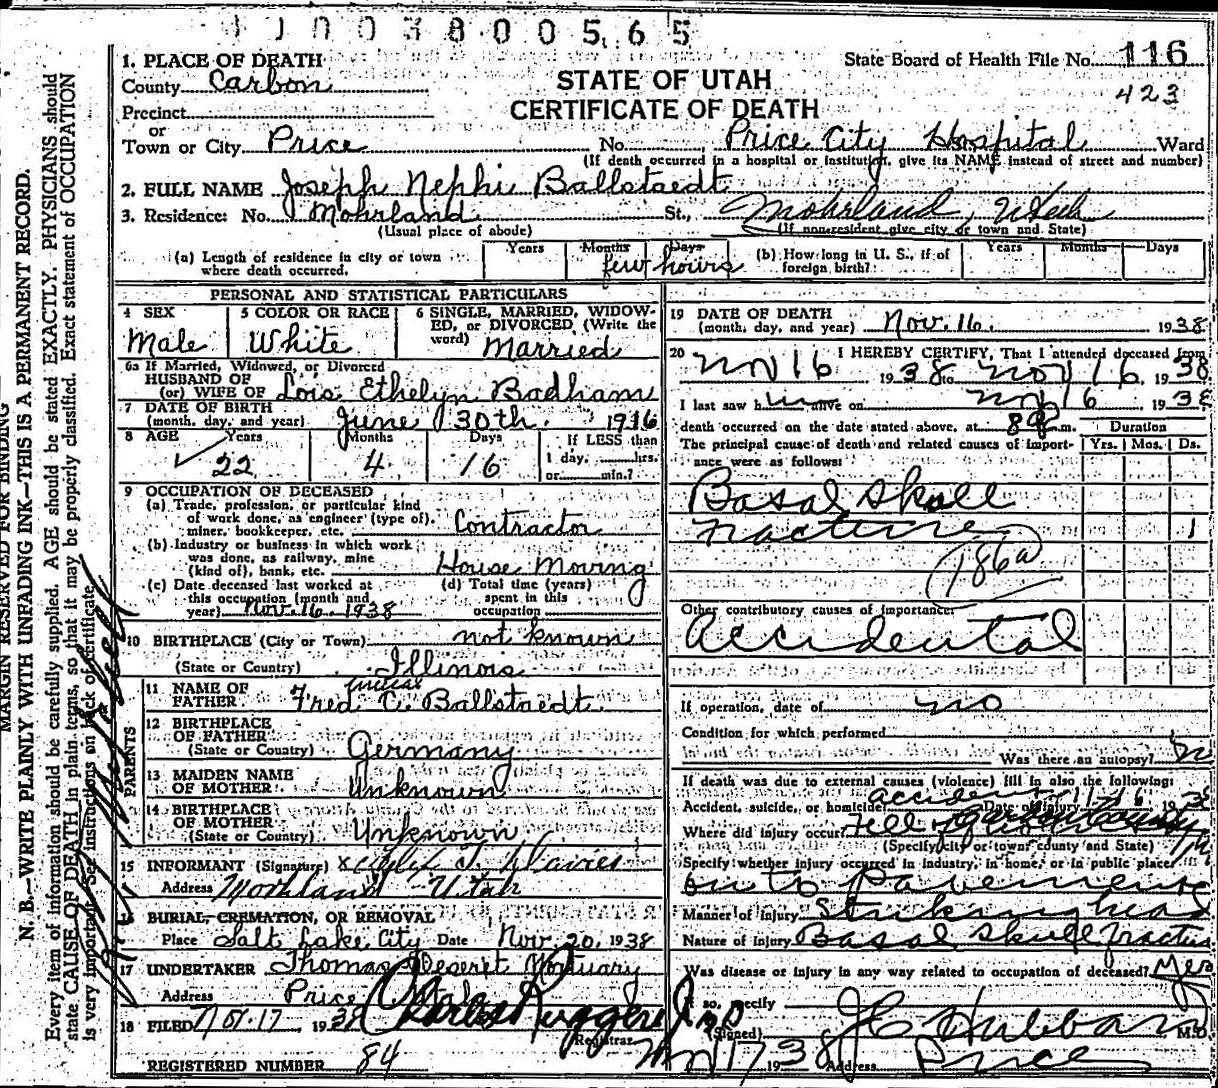 1 1 0 0 3 8 0 0 5 6 5
1. PLACE OF DEATH
State Board of Health File No. 116
County Carbon
STATE OF UTAH
423
Precinct
CERTIFICATE OF DEATH
or
Town or City Price No. Price City Hospital Ward
(If death occurred in a hospital or institution, give its NAME instead of street and number)
2. FULL NAME Joseph Nephi Ballstaedt
3. Residence: No. Mohrland St., Mohrland, Utah
(Usual place of abode) (If non-resident give city or town and State)
(a) Length of residence in city or town where death occurred. Years Months Days few hours (b) How long in U. S., if of foreign birth? Years Months Days
PERSONAL AND STATISTICAL PARTICULARS
4 SEX Male
5 COLOR OR RACE White
6 SINGLE, MARRIED, WIDOWED, or DIVORCED (Write the word) Married
6a If Married, Widowed, or Divorced
HUSBAND OF
(or) WIFE OF Lois Ethelyn Badham
7 DATE OF BIRTH
(month, day, and year) June 30th. 1916
8 AGE Years 22 Months 4 Days 16 If LESS than 1 day, hrs. or min.?
9 OCCUPATION OF DECEASED
(a) Trade, profession, or particular kind
of work done, as engineer (type of),
miner, bookkeeper, etc. Contractor
(b) Industry or business in which work
was done, as railway, mine
(kind of), bank, etc. House Moving
(c) Date deceased last worked at
this occupation (month and
year) Nov. 16. 1938
(d) Total time (years)
spent in this
occupation
10 BIRTHPLACE (City or Town) not known
(State or Country) Illinois
PARENTS
11 NAME OF
FATHER Fred C. Ballstaedt
12 BIRTHPLACE
OF FATHER
(State or Country) Germany
13 MAIDEN NAME
OF MOTHER Unknown
14 BIRTHPLACE
OF MOTHER
(State or Country) Unknown
15 INFORMANT (Signature) x
Address Mohrland Utah
16 BURIAL, CREMATION, OR REMOVAL
Place Salt Lake City Date Nov. 20, 1938
17 UNDERTAKER Thomas Deseret Mortuary
Address Price Utah
18 FILED Nov. 17, 1938 Charles Ruggeri
Registrar
REGISTERED NUMBER 84
19 DATE OF DEATH
(month, day, and year) Nov. 16. 1938
20 I HEREBY CERTIFY, That I attended deceased from
Nov 16 1938 to Nov 16, 1938
I last saw him alive on Nov 16 1938
death occurred on the date stated above, at 8 P m. Duration
The principal cause of death and related causes of importance were as follows: Yrs. Mos. Ds.
Basal skull
Fracture 1
186a
Other contributory causes of importance:
Accidental
If operation, date of no
Condition for which performed
Was there an autopsy? no
If death was due to external causes (violence) fill in also the following:
Accident, suicide, or homicide accident Date of injury 11-16 1938
Where did injury occur? Fell Carbon County
(Specify city or town, county and State)
Specify whether injury occurred in industry, in home, or in public place
onto Pavement
Manner of injury Striking head
Nature of injury Basal skull fracture
Was disease or injury in any way related to occupation of deceased? Yes
If so, specify
(Signed) J C Hubbard M.D.
Nov 17 1938 Address Price
MARGIN RESERVED FOR BINDING
N. B.—WRITE PLAINLY WITH UNFADING INK—THIS IS A PERMANENT RECORD.
Every item of information should be carefully supplied. AGE should be stated EXACTLY. PHYSICIANS should
state CAUSE OF DEATH in plain terms, so that it may be properly classified. Exact statement of OCCUPATION
is very important. See instructions on back of certificate.